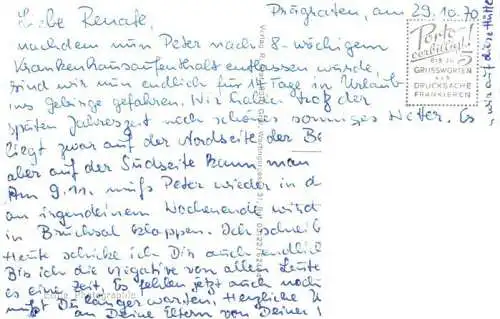 Prägraten, am 29.10.70
Liebe Renate,
nachdem nun Peter nach 8-wöchigem
Krankenhausaufenthalt entlassen wurde,
sind wir nun endlich für 14 Tage in Urlaub
ins Gebirge gefahren. Wir haben trotz der
späten Jahreszeit noch schönes sonniges Wetter. Es
liegt zwar auf der Nordseite der Be
aber auf der Südseite kann man
Am 9.11. muß Peter wieder in d
an irgendeinem Wochenende wird
in Bruchsal klappen. Ich schreib
Heute schicke ich Dir auch endlich
Bis ich die Negative von allen Leute
es eine Zeit. Es fehlen jetzt auch noch
mußt Du länger warten. Herzliche
an Deine Eltern von Deiner
Porto
verbilligt!
BIS ZU 5
GRUSSWORTEN
ALS
DRUCKSACHE
FRANKIEREN
wir auf diese Hütte
Verlag
Echte Photographie